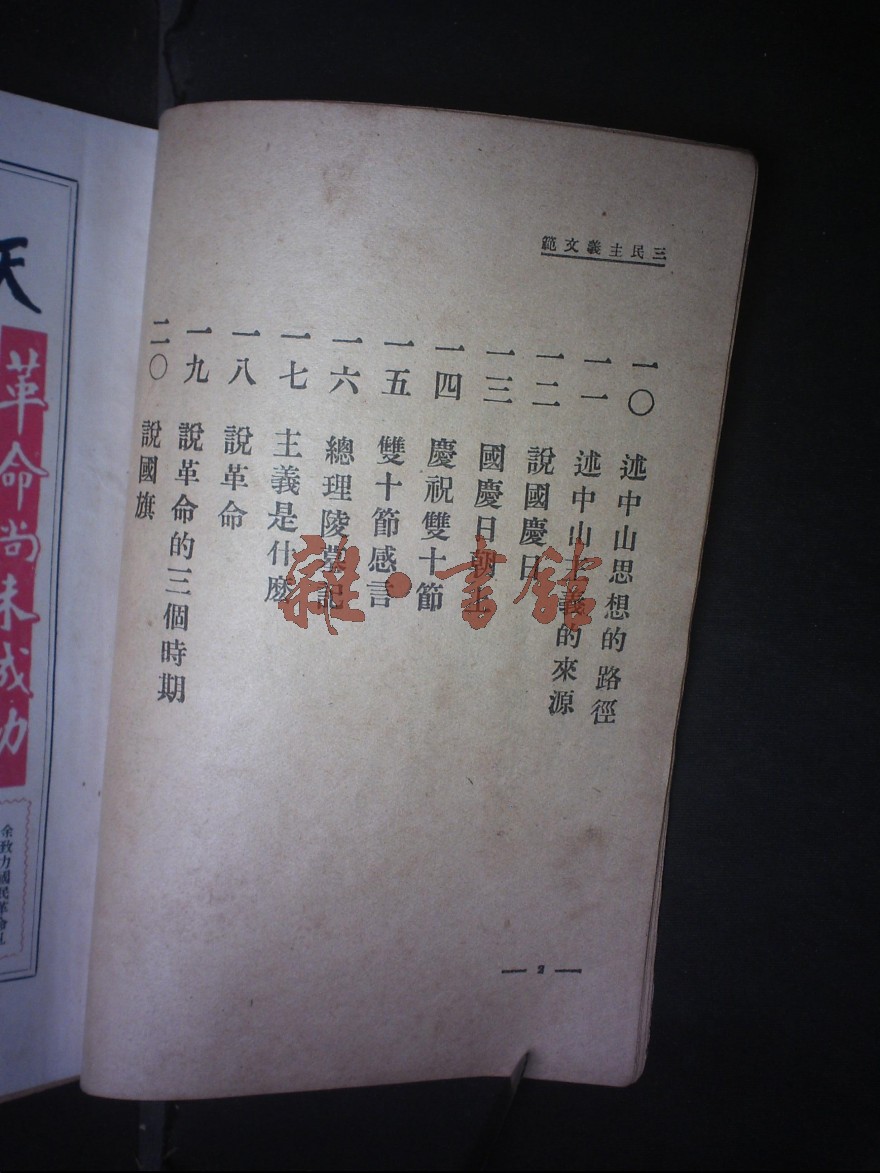 三民主義文範
一〇　述中山思想的路徑
一一　述中山主義的來源
一二　說國慶日
一三　國慶日朝上
一四　慶祝雙十節
一五　雙十節感言
一六　總理陵墓記
一七　主義是什麼
一八　說革命
一九　說革命的三個時期
二〇　說國旗
— 2 —
雜·書館
天
革命尚未成功
余致力國民革命凡